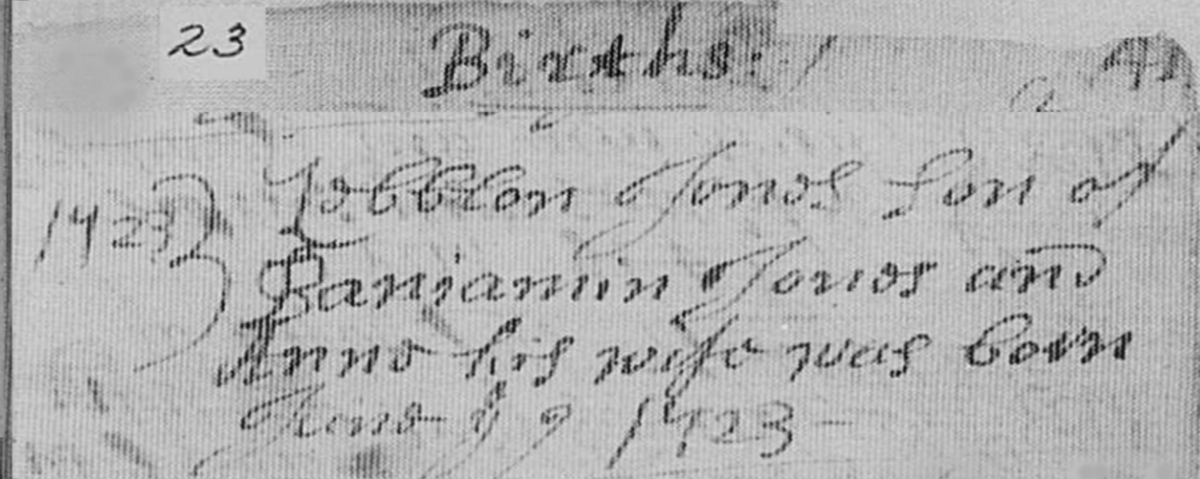 23
Births:
1723 Jobblon Jones Son of
Baniamin Jones and
Anne his wife was born
June y 9 1723